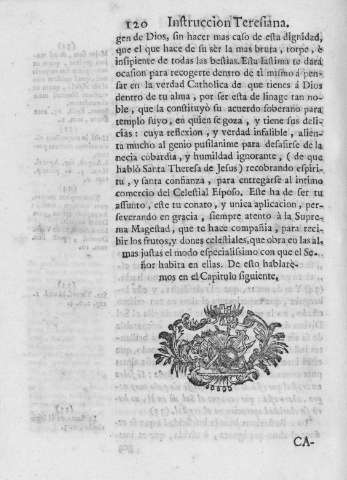 120 Instruccion Teresiana.
gen de Dios, sin hacer mas caso de esta dignidad,
que el que hace de su ser la mas bruta, torpe, è
insipiente de todas las bestias. Esta lastima te dará
ocasion para recogerte dentro de ti mismo á pen-
sar en la verdad Catholica de que tienes á Dios
dentro de tu alma, por ser esta de linage tan no-
ble, que la constituyò su acuerdo soberano para
templo suyo, en quien se goza, y tiene sus deli-
cias: cuya reflexion, y verdad infalible, alien-
ta mucho al genio pusilanime para desasirse de la
necia cobardia, y humildad ignorante, (de que
habló Santa Theresa de Jesus) recobrando espiri-
tu, y santa confianza, para entregarse al intimo
comercio del Celestial Esposo. Este ha de ser tu
assunto, este tu conato, y unica aplicacion, per-
severando en gracia, siempre atento à la Supre-
ma Magestad, que te hace compañia, para reci-
bir los frutos, y dones celestiales, que obra en las al-
mas justas el modo especialissimo con que el Se-
ñor habita en ellas. De esto hablarè-
mos en el Capitulo siguiente.
CA-